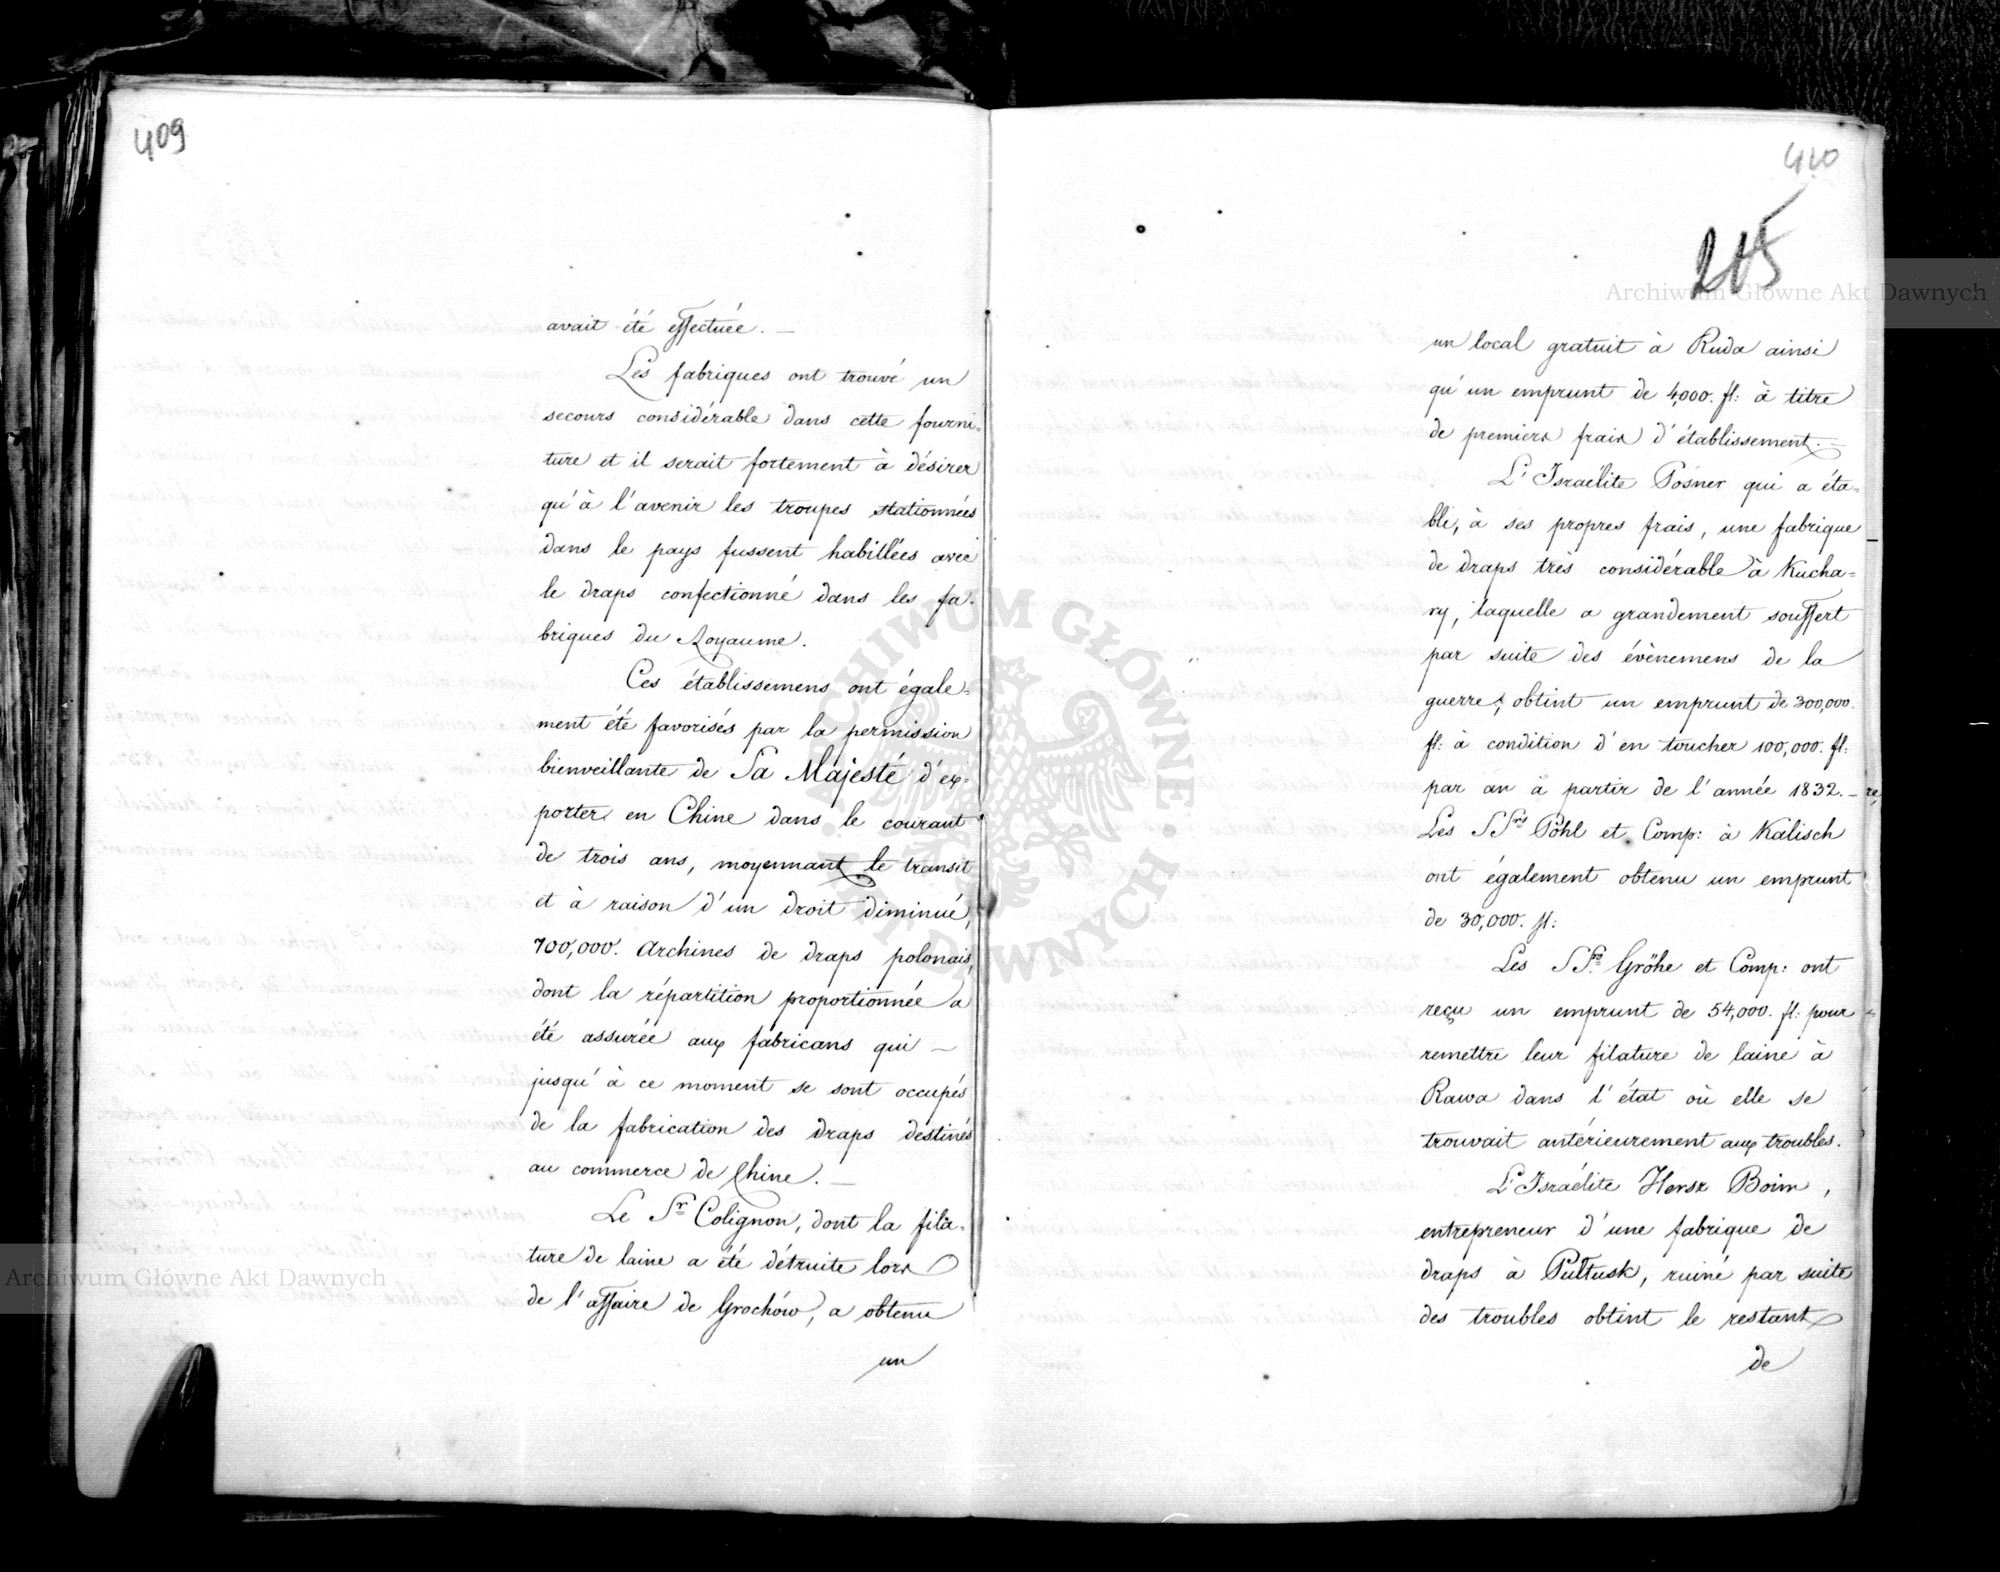 409
avait été effectuée. —
Les fabriques ont trouvé un
secours considérable dans cette fourni-
ture et il serait fortement à désirer
qu'à l'avenir les troupes stationnées
dans le pays fussent habillées avec
le draps confectionné dans les fa-
briques du Royaume.
Ces établissemens ont égale-
ment été favorisés par la permission
bienveillante de Sa Majesté d'ex-
porter en Chine dans le courant
de trois ans, moyennant le transit
et à raison d'un droit diminué,
700,000. Archines de draps polonais,
dont la répartition proportionnée a
été assurée aux fabricans qui —
jusqu'à ce moment se sont occupés
de la fabrication des draps destinés
au commerce de Chine. —
Le Sr Colignon, dont la fila-
ture de laine a été détruite lors
de l'affaire de Grochów, a obtenu
un
410
215
un local gratuit à Ruda ainsi
qu'un emprunt de 4,000. fl: à titre
de premiers frais d'établissement. —
L'Israélite Posner qui a éta-
bli, à ses propres frais, une fabrique
de draps très considérable à Kucha-
ry, laquelle a grandement souffert
par suite des évènemens de la
guerre, obtint un emprunt de 300,000.
fl: à condition d'en toucher 100,000. fl:
par an à partir de l'année 1832. —
Les SSrs Pöhl et Comp: à Kalisch
ont également obtenu un emprunt
de 30,000. fl:
Les SSrs Gröhe et Comp: ont
reçu un emprunt de 54,000. fl: pour
remettre leur filature de laine à
Rawa dans l'état où elle se
trouvait antérieurement aux troubles.
L'Israélite Hersz Boim,
entrepreneur d'une fabrique de
draps à Pultusk, ruiné par suite
des troubles obtint le restant
de
Archiwum Główne Akt Dawnych
Archiwum Główne Akt Dawnych
ARCHIWUM GŁÓWNE AKT DAWNYCH